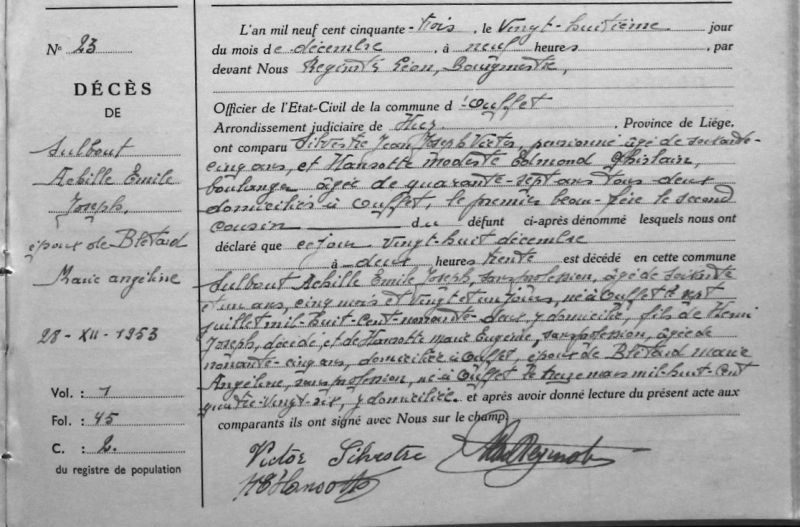 N° 23
DÉCÈS
DE
Sulbout
Achille Emile
Joseph,
époux de Blétard
Marie Angéline
28-XII-1953
Vol. : 1
Fol. : 45
C. : 2.
du registre de population
L'an mil neuf cent cinquante-trois, le vingt-huitième jour
du mois de décembre, à neuf heures, par
devant Nous Léon, Bourgmestre,
Officier de l'Etat-Civil de la commune d'Ouffet
Arrondissement judiciaire de Huy, Province de Liége,
ont comparu Silvestre Jean Joseph Victor, pensionné âgé de soixante-
cinq ans, et Hansotte Modeste Edmond Ghislain,
boulanger âgée de quarante-sept ans tous deux
domiciliés à Ouffet, le premier beau-père le second
cousin du défunt ci-après dénommé lesquels nous ont
déclaré que ce jour vingt-huit décembre
à deux heures trente est décédé en cette commune
Sulbout Achille Emile Joseph, sans profession, âgé de soixante
et un ans, cinq mois et vingt et un jours, né à Ouffet le sept
juillet mil-huit-cent nonante-deux, y domicilié, fils de Henri
Joseph, décédé, et de Hansotte Marie Eugénie, sans profession, âgée de
nonante-cinq ans, domiciliée à Ouffet, époux de Blétard Marie
Angéline, sans profession, né à Ouffet le treize mars mil-huit cent
quatre-vingt-six, y domiciliée. et après avoir donné lecture du présent acte aux
comparants ils ont signé avec Nous sur le champ.
Victor Silvestre
Hansotte